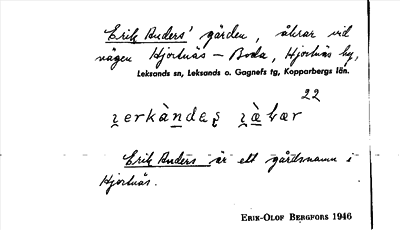 Erik Anders' gården, åkrar vid
vägen Hjortnäs – Boda, Hjortnäs by,
Leksands sn, Leksands o. Gagnefs tg, Kopparbergs län.
22
Erik Anders är ett gårdsnamn i
Hjortnäs.
ERIK-OLOF BERGFORS 1946